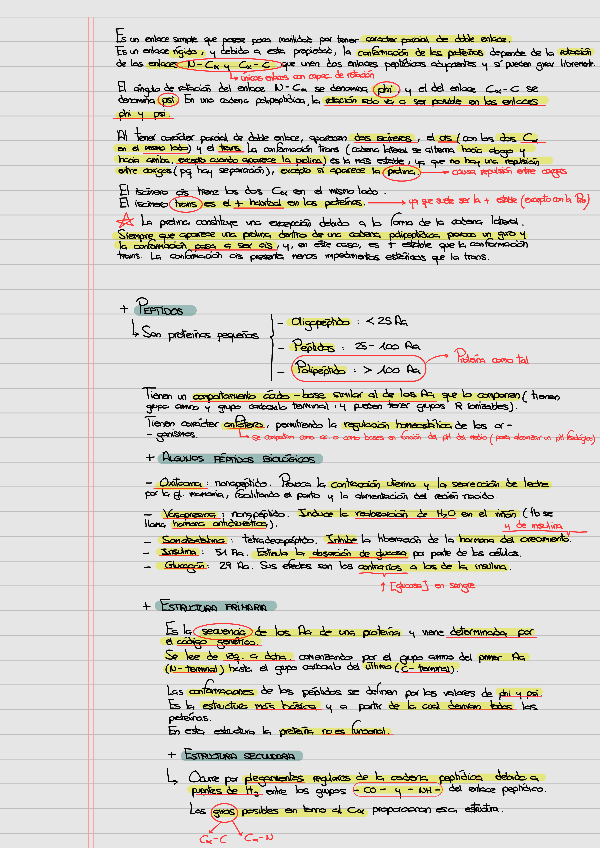 Es un enlace simple que posee poca movilidad por tener carácter parcial de doble enlace.
Es un enlace rígido, y debido a esta propiedad, la conformación de las proteínas depende de la rotación
de los enlaces N-Cα y Cα-C que unen dos enlaces peptídicos adyacentes y sí pueden girar libremente.
↳ únicos enlaces con capac. de rotación
El ángulo de rotación del enlace N-Cα se denomina phi y el del enlace Cα-C se
denomina psi. En una cadena polipeptídica, la rotación solo va a ser posible en los enlaces
phi y psi.
Al tener carácter parcial de doble enlace, aparecen dos isómeros, el cis (con los dos Cα
en el mismo lado) y el trans. La conformación trans (cadena lateral se alterna hacia abajo y
hacia arriba, excepto cuando aparece la prolina) es la más estable, ya que no hay una repulsión
entre cargas (pq hay separación), excepto si aparece la prolina. → causa repulsión entre cargas
El isómero cis tiene los dos Cα en el mismo lado.
El isómero trans es el + habitual en las proteínas. → ya que suele ser la + estable (excepto con la Pro)
☆ La prolina constituye una excepción debido a la forma de la cadena lateral.
Siempre que aparece una prolina dentro de una cadena polipeptídica, provoca un giro y
la conformación pasa a ser cis, y, en este caso, es + estable que la conformación
trans. La conformación cis presenta menos impedimentos estéricos que la trans.
+ PÉPTIDOS
↳ Son proteínas pequeñas
- Oligopéptido : < 25 Aa
- Péptidos : 25 - 100 Aa
- Polipéptido : > 100 Aa → Proteína como tal
Tienen un comportamiento ácido-base similar al de los Aa que lo componen (tienen
grupo amino y grupo carboxilo terminal, y pueden tener grupos R ionizables).
Tienen carácter anfótero, permitiendo la regulación homeostática de los or-
-ganismos. ↳ se comportan como ác. o como bases en función del pH del medio (para alcanzar un pH fisiológico)
+ ALGUNOS PÉPTIDOS BIOLÓGICOS
- Oxitocina : nonapéptido. Provoca la contracción uterina y la secreción de leche
por la gl. mamaria, facilitando el parto y la alimentación del recién nacido
- Vasopresina : nonapéptido. Induce la reabsorción de H2O en el riñón (tb se
llama hormona antidiurética).
y de insulina
- Somatostatina : tetradecapéptido. Inhibe la liberación de la hormona del crecimiento.
- Insulina : 51 Aa. Estimula la absorción de glucosa por parte de las células.
- Glucagón : 29 Aa. Sus efectos son los contrarios a los de la insulina.
↑ [glucosa] en sangre
+ ESTRUCTURA PRIMARIA
Es la secuencia de los Aa de una proteína y viene determinada por
el código genético.
Se lee de izq. a dcha. comenzando por el grupo amino del primer Aa
(N-terminal) hasta el grupo carboxilo del último (C-terminal).
Las conformaciones de los péptidos se definen por los valores de phi y psi.
Es la estructura más básica y a partir de la cual derivan todas las
proteínas.
En esta estructura la proteína no es funcional.
+ ESTRUCTURA SECUNDARIA
↳ Ocurre por plegamientos regulares de la cadena peptídica debido a
puentes de H2 entre los grupos -CO- y -NH- del enlace peptídico.
Los giros posibles en torno al Cα proporcionan esa estructura.
Cα-C Cα-N